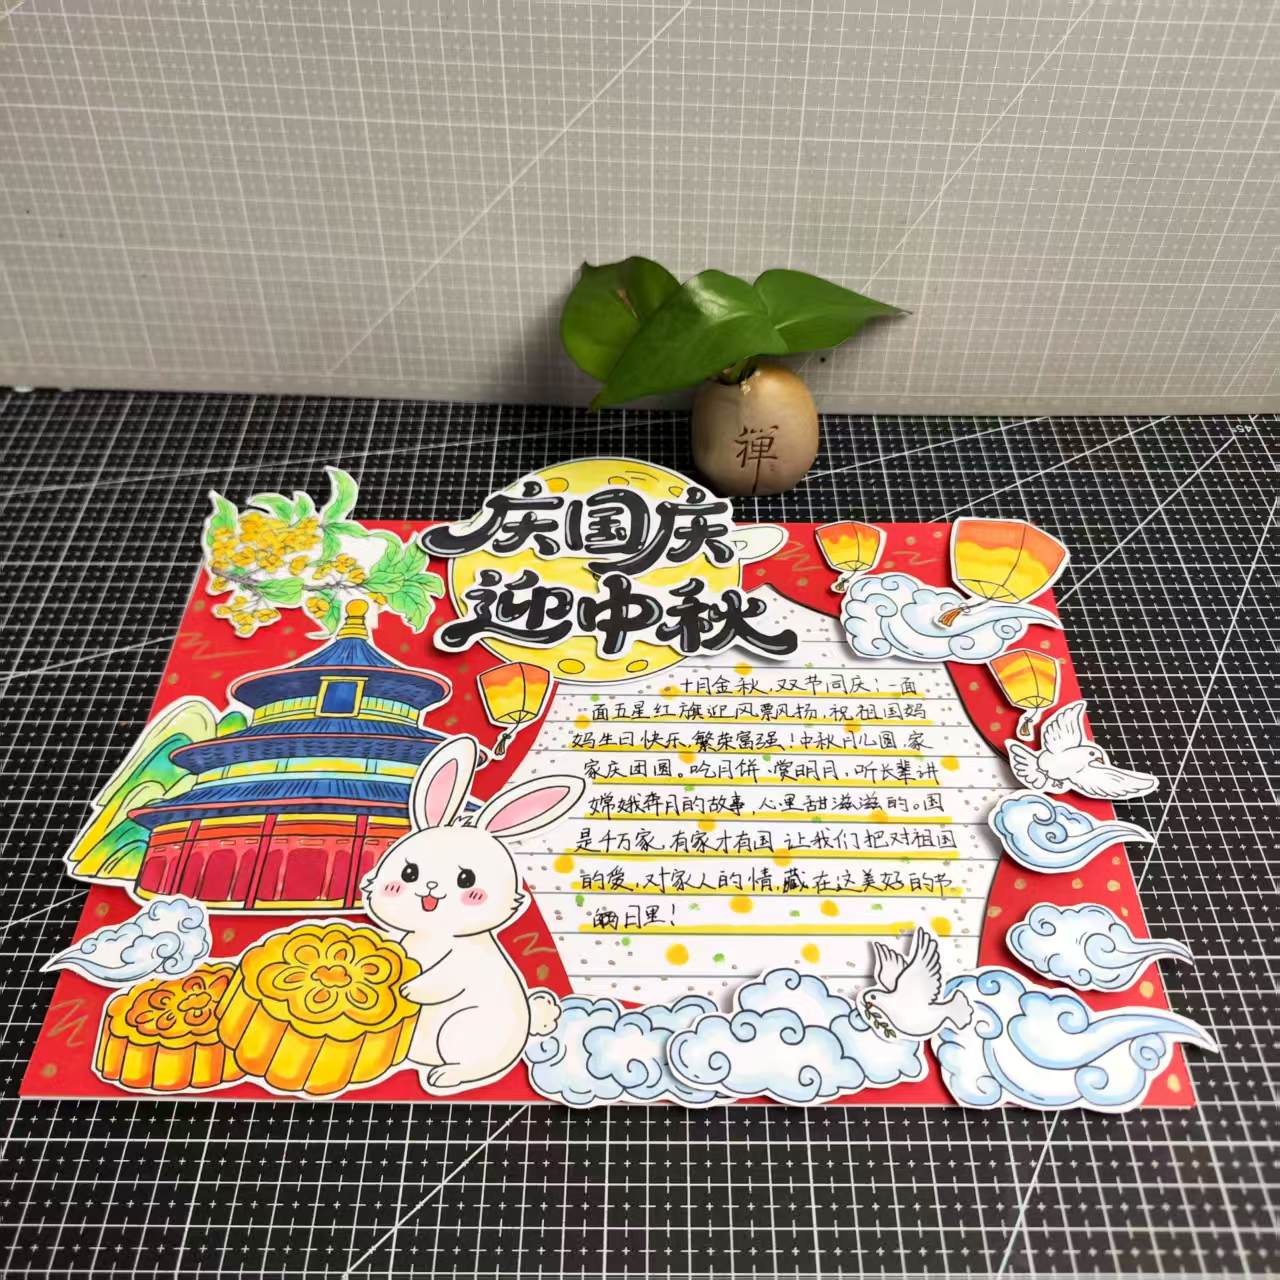 禅
庆国庆
迎中秋
十月金秋,双节同庆;一面
面五星红旗迎风飘扬,祝祖国妈
妈生日快乐,繁荣富强!中秋月儿圆 家
家庆团圆。吃月饼 赏明月,听长辈讲
嫦娥奔月的故事,心里甜滋滋的。国
是千万家,有家才有国 让我们把对祖国
的爱,对家人的情,藏在这美好的节
日里!
45°